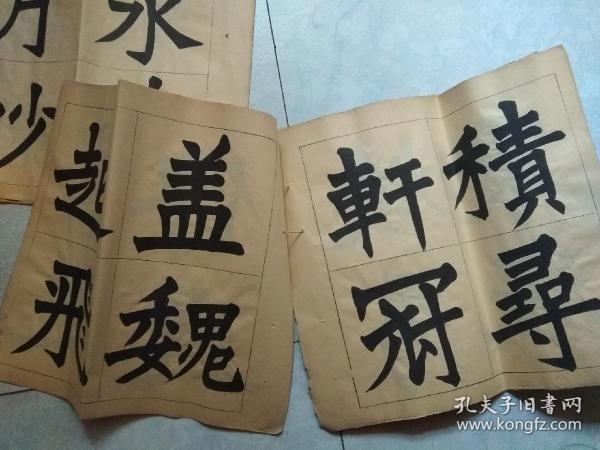 永
月
沙
積
尋
軒
冠
盖
魏
趙
飛
孔夫子旧書网
www.kongfz.com